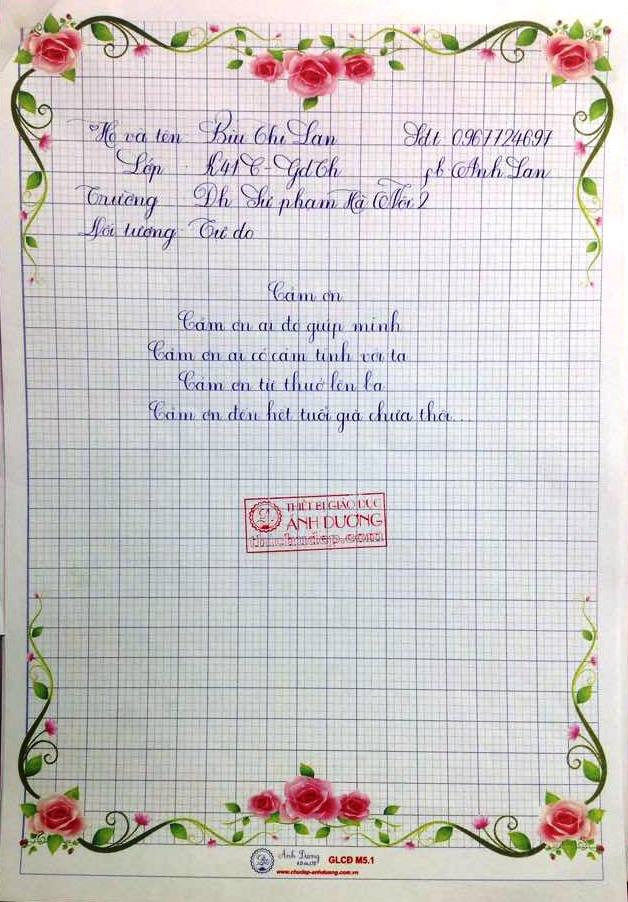 Họ và tên Bùi Thị Lan Sđt 0967724697
Lớp : K41C-GdTh fb Anh Lan
Trường Đh Sư phạm Hà Nội 2
Đối tượng Tự do
Cảm ơn
Cảm ơn ai đó giúp mình
Cảm ơn ai có cảm tình với ta
Cảm ơn từ thuở lên ba
Cảm ơn đến hết tuổi già chưa thôi...
THIẾT BỊ GIÁO DỤC
ÁNH DƯƠNG
thichudep.com
Ánh Dương GLCĐ M5.1
www.chudep-anhduong.com.vn